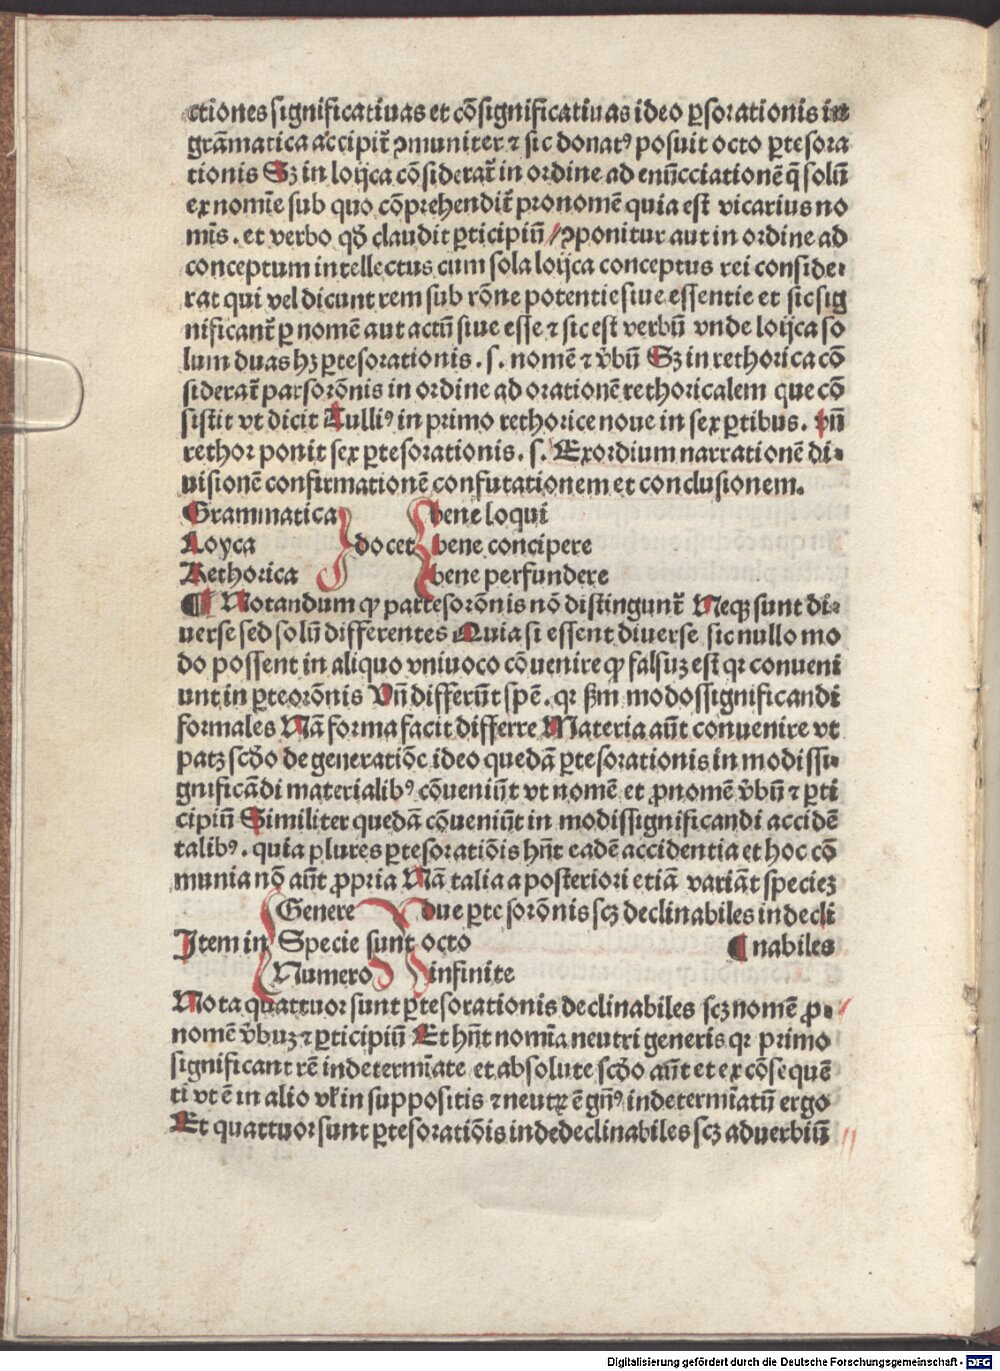 ctiones significatiuas et cōsignificatiuas ideo ꝑsorationis in
grāmatica accipit᷑ ꝯmuniter ⁊ sic donatꝰ posuit octo ꝑtesora
tionis Sꝫ in loijca cōsiderat᷑ in ordine ad enūcciationē q̄ solū
ex nomīe sub quo cōprehendit᷑ pronomē quia est vicarius no
mīs . et verbo qḋ claudit ꝑticipiū / ꝓponitur aut in ordine ad
conceptum intellectus cum sola loijca conceptus rei conside⸗
rat qui vel dicunt rem sub rōne potentie siue essentie et sic sig
nificant᷑ ꝑ nomē aut actū siue esse ⁊ sic est verbū vnde loijca so
lum duas hꝫ ꝑtesorationis . s . nomē ⁊ v̄bū Sꝫ in rethorica cō
siderat᷑ parsorōnis in ordine ad orationē rethoricalem que cō
sistit vt dicit Tulliꝰ in primo rethorice noue in sex ꝑtibus . vn̄
rethor ponit sex ꝑtesorationis . s . Exordium narrationē di⸗
uisionē confirmationē confutationem et conclusionem.
Grammatica bene loqui
Loyca docet bene concipere
Rethorica bene perfundere
¶ Notandum ꝙ partesorōnis nō distingunt᷑ Neqꝫ sunt di⸗
uerse sed solū differentes Quia si essent diuerse sic nullo mo
do possent in aliquo vniuoco cōuenire ꝙ falsuꝫ est qꝛ conueni
unt in ꝑteorōnis Vn̄ differūt spē . qꝛ ẜm modossignificandi
formales Nā forma facit differre Materia aūt conuenire vt
patꝫ scḋo de generatiōe ideo quedā ꝑtesorationis in modissi⸗
gnificādi materialibꝰ cōueniūt vt nomē et ꝓnomē v̄bū ⁊ ꝑti
cipiū Similiter quedā cōueniūt in modissignificandi accidē
talibꝰ . quia plures ꝑtesoratiōis hn̄t eadē accidentia et hoc cō
munia nō aūt ꝓpria Nā talia a posteriori etiā variāt specieꝫ
Genere due ꝑte sorōnis scꝫ declinabiles indecli
Item in Specie sunt octo ¶ nabiles
Numero infinite
Nota quattuor sunt ꝑtesorationis declinabiles scꝫ nomē ꝓ⸗
nomē v̄buꝫ ⁊ ꝑticipiū Et hn̄t nomīa neutri generis qꝛ primo
significant rē indetermīate et absolute scḋo aūt et ex cōsequē
ti vt ē in alio vl̄ in suppositis ⁊ neutꝝ ē gn̄ꝰ indetermīatū ergo
Et quattuor sunt ꝑtesoratiōis indedeclinabiles scꝫ aduerbiū
Digitalisierung gefördert durch die Deutsche Forschungsgemeinschaft - DFG